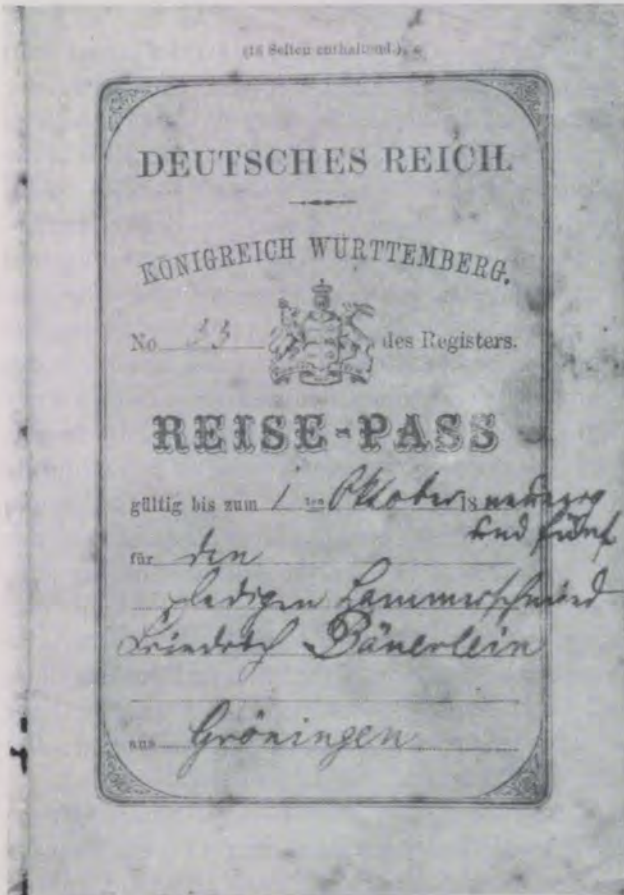 (16 Seiten enthaltend.)
DEUTSCHES REICH.
KÖNIGREICH WÜRTTEMBERG.
No 33 des Registers.
REISE-PASS
gültig bis zum 1 ten Oktober 18 neunzig
und fünf
für den
ledigen Hammerschmied
Friedrich Bäuerlein
aus Gröningen